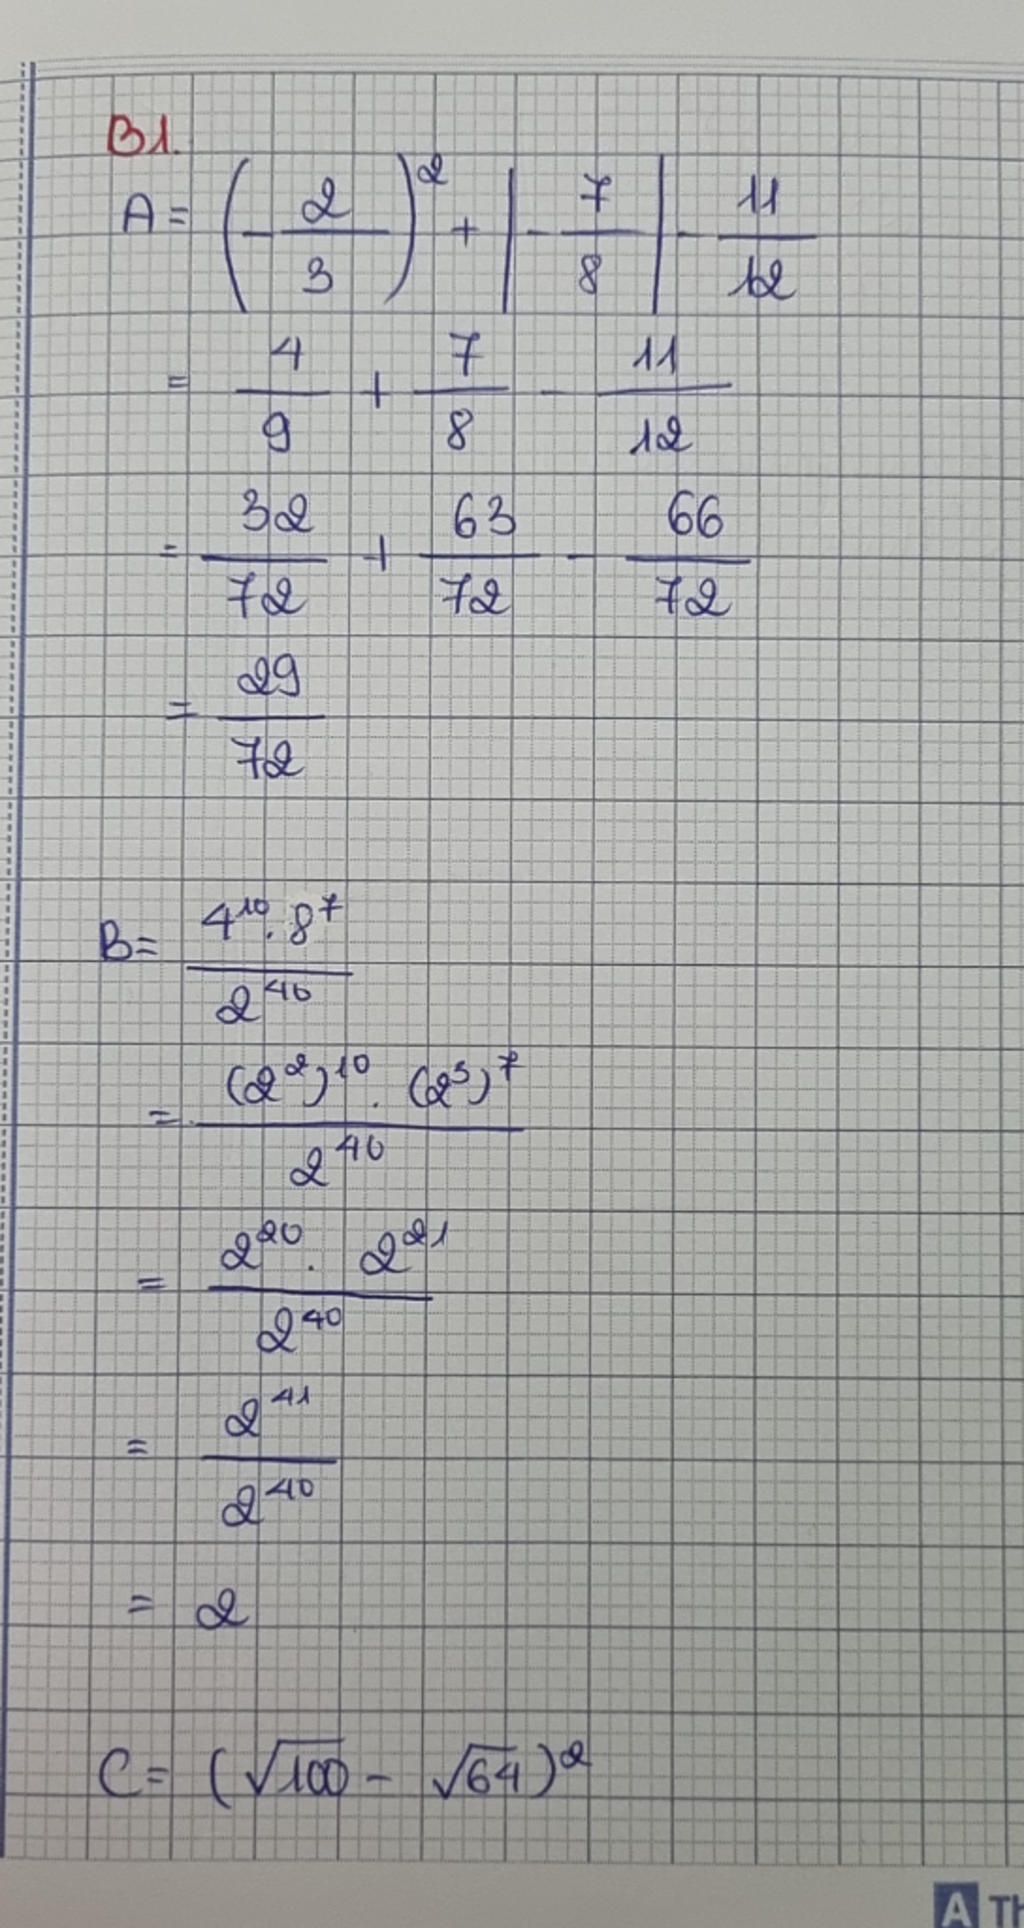 B1.
A = (-2/3)² + |-7/8| - 11/12
= 4/9 + 7/8 - 11/12
= 32/72 + 63/72 - 66/72
= 29/72
B = 4¹⁰ . 8⁷ / 2⁴⁰
= (2²)¹⁰ . (2³)⁷ / 2⁴⁰
= 2²⁰ . 2²¹ / 2⁴⁰
= 2⁴¹ / 2⁴⁰
= 2
C = (√100 - √64)²
A Th